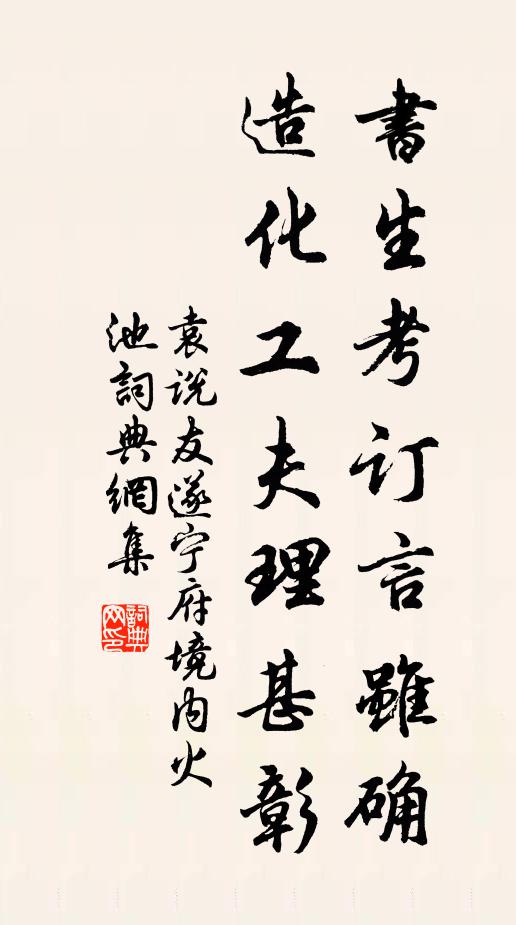 書生考订言雖确
造化工夫理甚彰
袁説友遂宁府境内火
池詞典網集
詞典网印